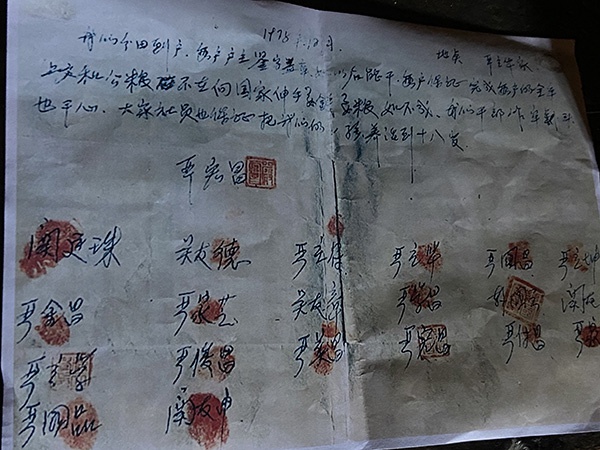 1978年12月. 地点 严立华家
我们分田到户,每户户主签字盖章,如以后能干,每户保证完成每户的全年
上交和公粮 不在向国家伸手要钱要粮 如不成,我们干部作牢刹头
也干心,大家社员也保证把我们的小孩养活到十八岁
严宏昌
关廷珠 关友德 严立付 严立华 严国昌 严立坤
严金昌 严家芝 关友章 严学昌
严立学 严俊昌 严美昌 严宏昌 严付昌
严国品 关友申